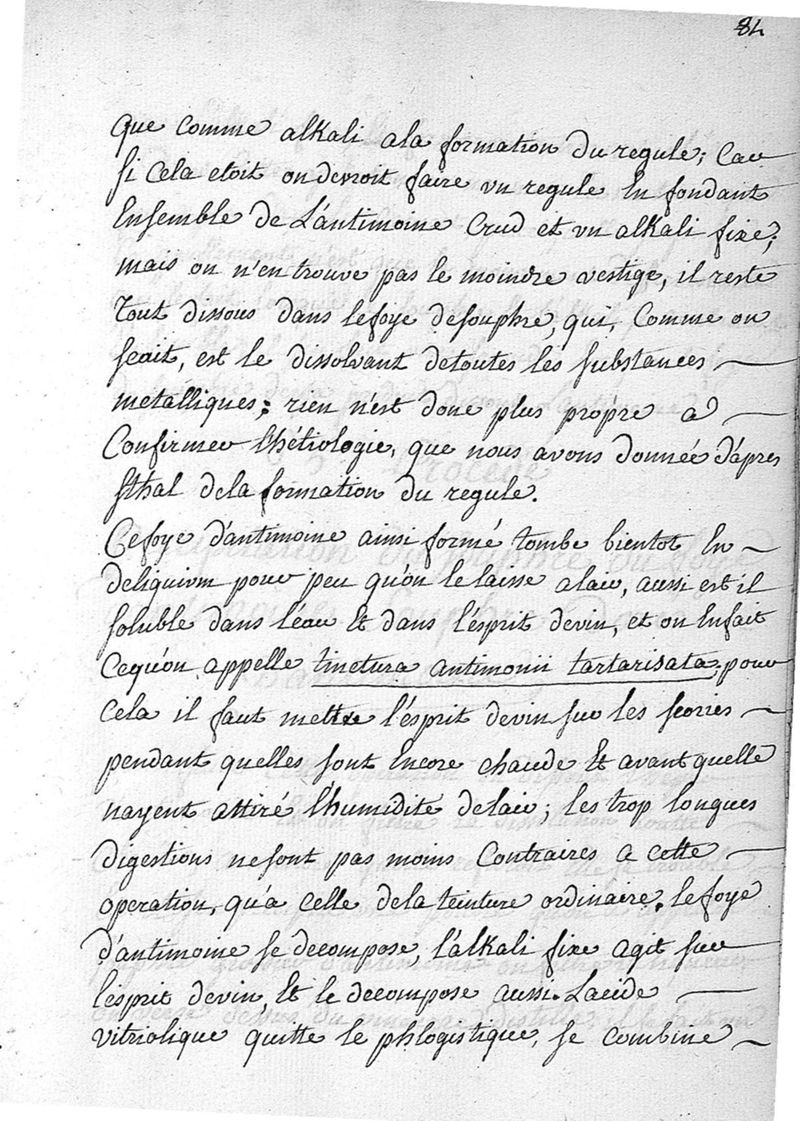 84
que comme alkali a la formation du regule; Car
si cela etoit on devroit faire un regule En fondant
Ensemble de L'antimoine Crud et vn alkali fixe;
mais on n'en trouve pas le moindre vestige, il reste
Tout dissous dans le foye de souphre, qui, Comme on
scait, est le dissolvant de toutes les substances
metalliques; rien n'est donc plus propre a
Confirmer l'hétiologie, que nous avons donnée d'apres
sthal de la formation du regule.
Ce foye d'antimoine ainsi formé tombe bientot En
deliquium pour peu qu'on le laisse a l'air, aussi est il
soluble dans l'eau Et dans l'esprit de vin, et on En fait
Ce qu'on appelle tinctura antimonii tartarisata, pour
Cela il faut mettre l'esprit de vin sur les scories
pendant quelles sont Encore chaude Et avant quelle
nayent attiré l'humidité de l'air; les trop longues
digestions ne sont pas moins Contraires a cette
operation, qu'a celle de la teinture ordinaire. le foye
d'antimoine se decompose, l'alkali fixe agit sur
l'esprit de vin, Et le decompose aussi. Lacide
vitriolique quitte le phlogistique, se combine